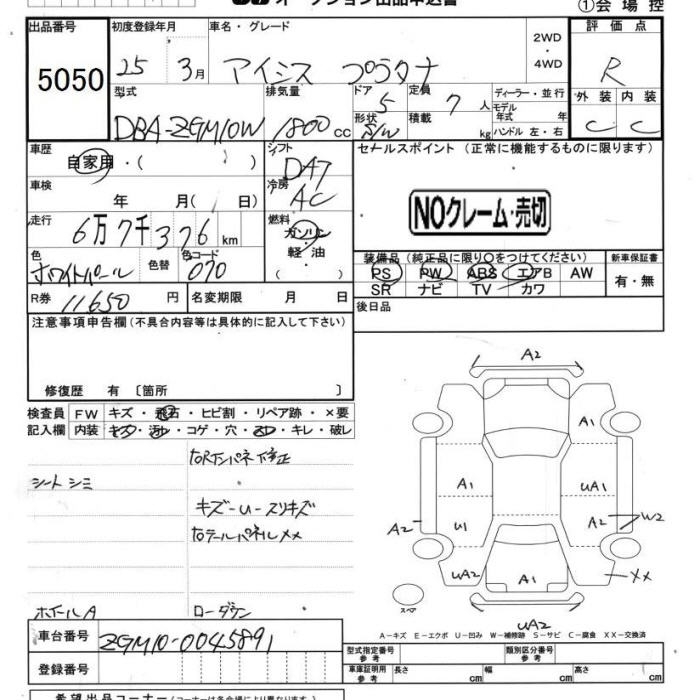 オークション出品申込書
①会場控
出品番号 初度登録年月 車名・グレード 2WD・4WD 評価点
5050 25 3月 アイシス プラタナ R
型式 排気量 ドア 5 定員 7人 ディーラー・並行 外装 内装
DBA-ZGM10W 1800cc 形状 S/W 積載 kg モデル年式 年 ハンドル 左・右 C C
車歴 自家用・( ) シフト DA7 セールスポイント (正常に機能するものに限ります)
車検 年 月( 日) 冷房 AC
NOクレーム・売切
走行 6万7千376km 燃料 ガソリン 軽油 ( )
色 ホワイトパール 色替 色コード 070
装備品 (純正品に限り○をつけてください) 新車保証書
PS PW ABS エアB AW 有・無
SR ナビ TV カワ
R券 11650円 名変期限 月 日 後日品
注意事項申告欄(不具合内容等は具体的に記入して下さい)
修復歴 有 〔箇所 〕
検査員 FW キズ・飛石・ヒビ割・リペア跡・×要
記入欄 内装 キズ・汚レ・コゲ・穴・スレ・キレ・破レ
右Rインパネ修正
シート シミ
キズ-U-スリキズ
右テールパネルXX
ホイールA ローダウン
A2
A1
A1 UA1
A2 U1 A2 W2
UA2 A1 XX
スペア
UA2
A-キズ E-エクボ U-凹み W-補修跡 S-サビ C-腐食 XX-交換済
車台番号 ZGM10-0045891
登録番号
型式指定番号 参考 類別区分番号 参考
車庫証明用 参考 長さ cm 幅 cm 高さ cm
希望出品コーナー(コーナーは各会場により異なります。)